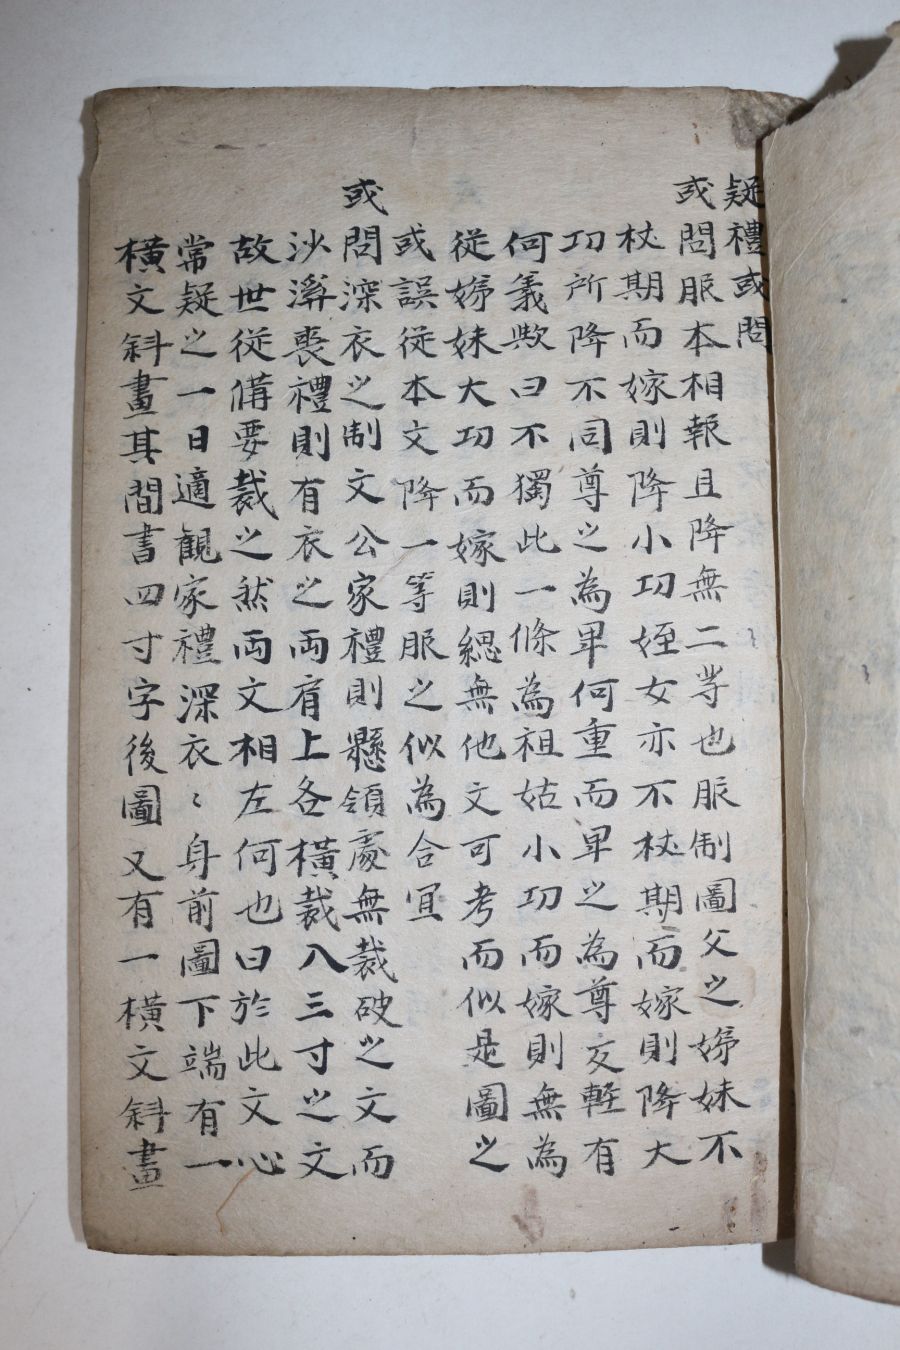 疑禮或問
或問服本相報且降無二等也服制圖父之姊妹不
杖期而嫁則降小功姪女亦不杖期而嫁則降大
功所降不同尊之為卑何重而卑之為尊反輕有
何義歟曰不獨此一條為祖姑小功而嫁則無為
從姊妹大功而嫁則緦無他文可考而似是圖之
或誤從本文降一等服之似為合宜
或問深衣之制文公家禮則懸領處無裁破之文而
沙溪喪禮則有衣之両肩上各橫裁入三寸之文
故世從備要裁之然両文相左何也曰於此文心
常疑之一日適觀家禮深衣〻身前圖下端有一
橫文斜畫其間書四寸字後圖又有一橫文斜畫